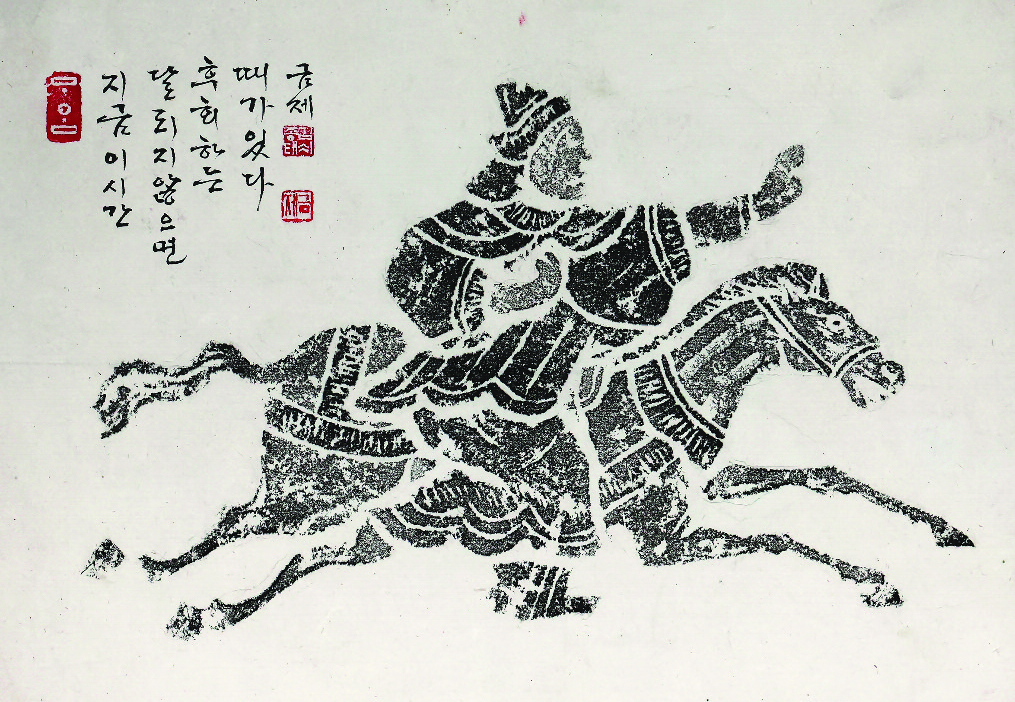 지금이시간
달리지않으면
후회하는
때가있다
금제
금제